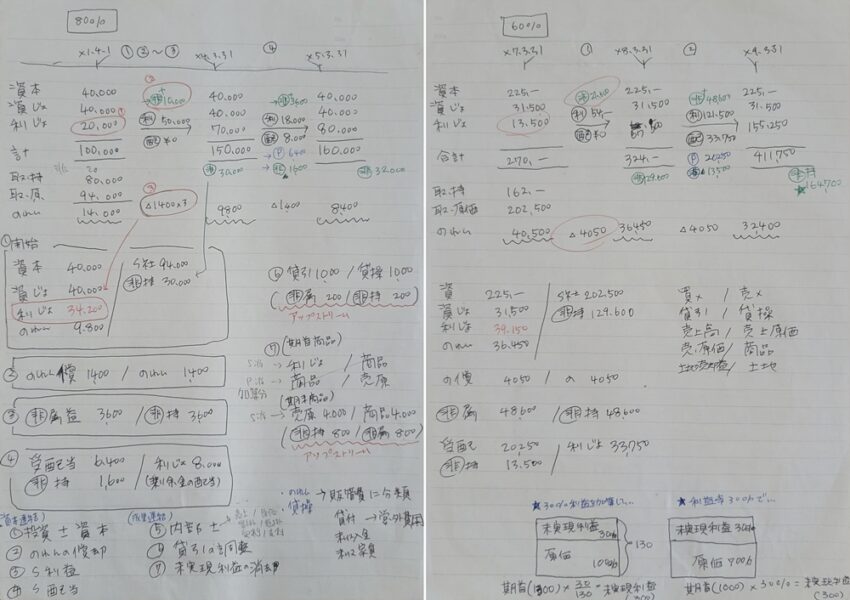 80%
x1.4.1 ①②~③ x4.3.31 ④ x5.3.31
資本 40,000 40,000 40,000
資じょ 40,000 40,000 40,000
利じょ 20,000 利 50,000 70,000 利 18,000 80,000
配 ¥0 配 8,000
合計 100,000 150,000 160,000
非 30,000 非 1600 非持 32,000
取.持 80,000
取.原 94,000 △1400×3
のれん 14,000 9800 △1400 8,400
①開始
資本 40,000 / S社 94,000
資じょ 40,000 / 非持 30,000
利じょ 34,200
のれん 9,800
② のれん償 1400 / のれん 1,400
③ 非属益 3600 / 非持 3,600
④ 受配当 6,400 / 利じょ 8,000
非持 1,600
⑥ 貸引 1,000 / 貸操 1,000
(非属 200 / 非持 200)
アップストリーム
⑦ (期首商品)
S流→ 利じょ / 商品
P流→ 商品 / 売原
(期末商品)
S流→ 売原 4,000 / 商品 4,000
(非持 800 / 非属 800)
アップストリーム
(資本連結)
①投資と資本
②のれんの償却
③S利益
④S配当
(成果連結)
⑤内部取引
⑥貸引の調整
⑦未実現利益の消去
のれん
貸操 → 販管費に分類
貸付 → 営.外費用
60%
x7.3.31 ① x8.3.31 ② x9.3.31
資本 225,- 225,- 225,-
資じょ 31,500 31,500 31,500
利じょ 13,500 利 54,- 67,500 利 121,500 155,250
配 ¥0 配 33,750
合計 270,- 324,- 411,750
P 20,250
非 129,600 非 13,500 非持 164,700
取.持 162,-
取.原価 202,500
のれん 40,500 △4050 36450 △4050 32400
資 225,- / S社 202,500
資じょ 31,500 / 非持 129,600
利じょ 39,150
のれん 36,450
の償 4050 / の 4050
非属 48,600 / 非持 48,600
受配 20,250 / 利じょ 33,750
非持 13,500
買× / 売×
貸引 / 貸操
売上高 / 売上原価
売.原価 / 商品
土地売却益 / 土地
★30%の利益を加算して…
未実現利益 30%
原価 100%
= 130
期首(1300) × 30/130 = 未実現利益 (300)
★利益率30%で…
未実現利益 30%
原価 70%
期首(1000) × 30% = 未実現利益 (300)